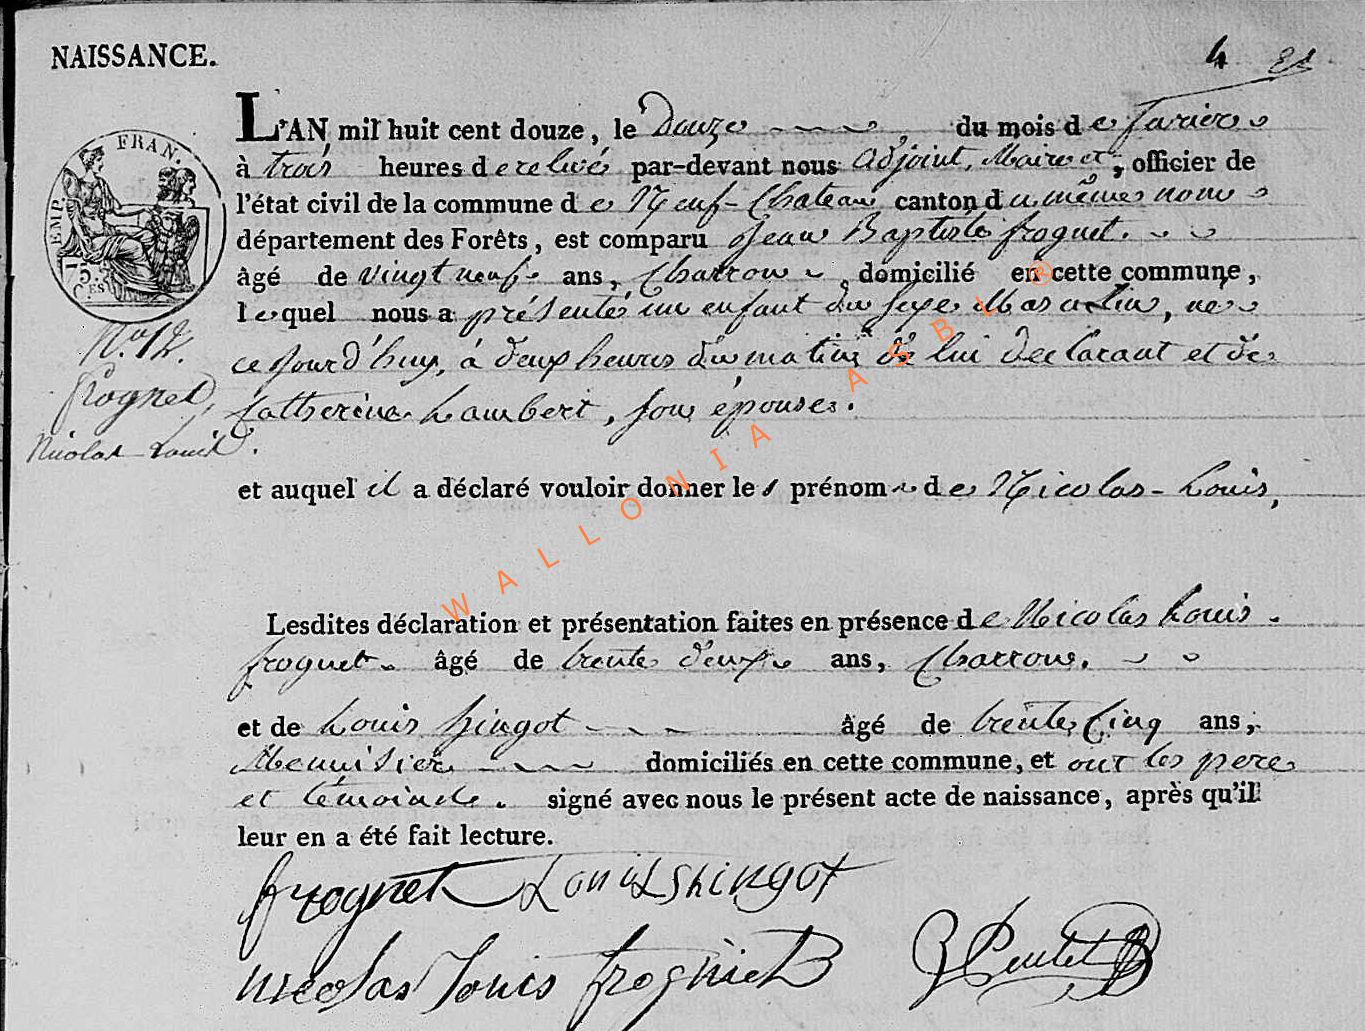 NAISSANCE.
4
L'AN mil huit cent douze, le Douze du mois de favrier
à trois heures de relevé par-devant nous adjoint, Maire et, officier de
l'état civil de la commune de Neuf-Chateau canton du même nom
département des Forêts, est comparu Jean Baptiste frognet.
âgé de vingt neuf ans, Charron, domicilié en cette commune,
lequel nous a présenté un enfant du sexe Masculin, né
ce jour d'huy, à deux heures du matin de lui declarant et de
Catherine Lambert, son épouse.
et auquel il a déclaré vouloir donner les prénom de Nicolas-Louis,
Lesdites déclaration et présentation faites en présence de Nicolas Louis
frognet âgé de trente deux ans, Charron.
et de Louis hingot âgé de trente Cinq ans,
Menuisier domiciliés en cette commune, et ont les pere
et témoins. signé avec nous le présent acte de naissance, après qu'il
leur en a été fait lecture.
EMP. FRAN.
75 Ces
No. 12.
frognet,
Nicolas-Louis.
frognet Louis hingot
nicolas Louis frogniet
WALLONIA ASBL ®